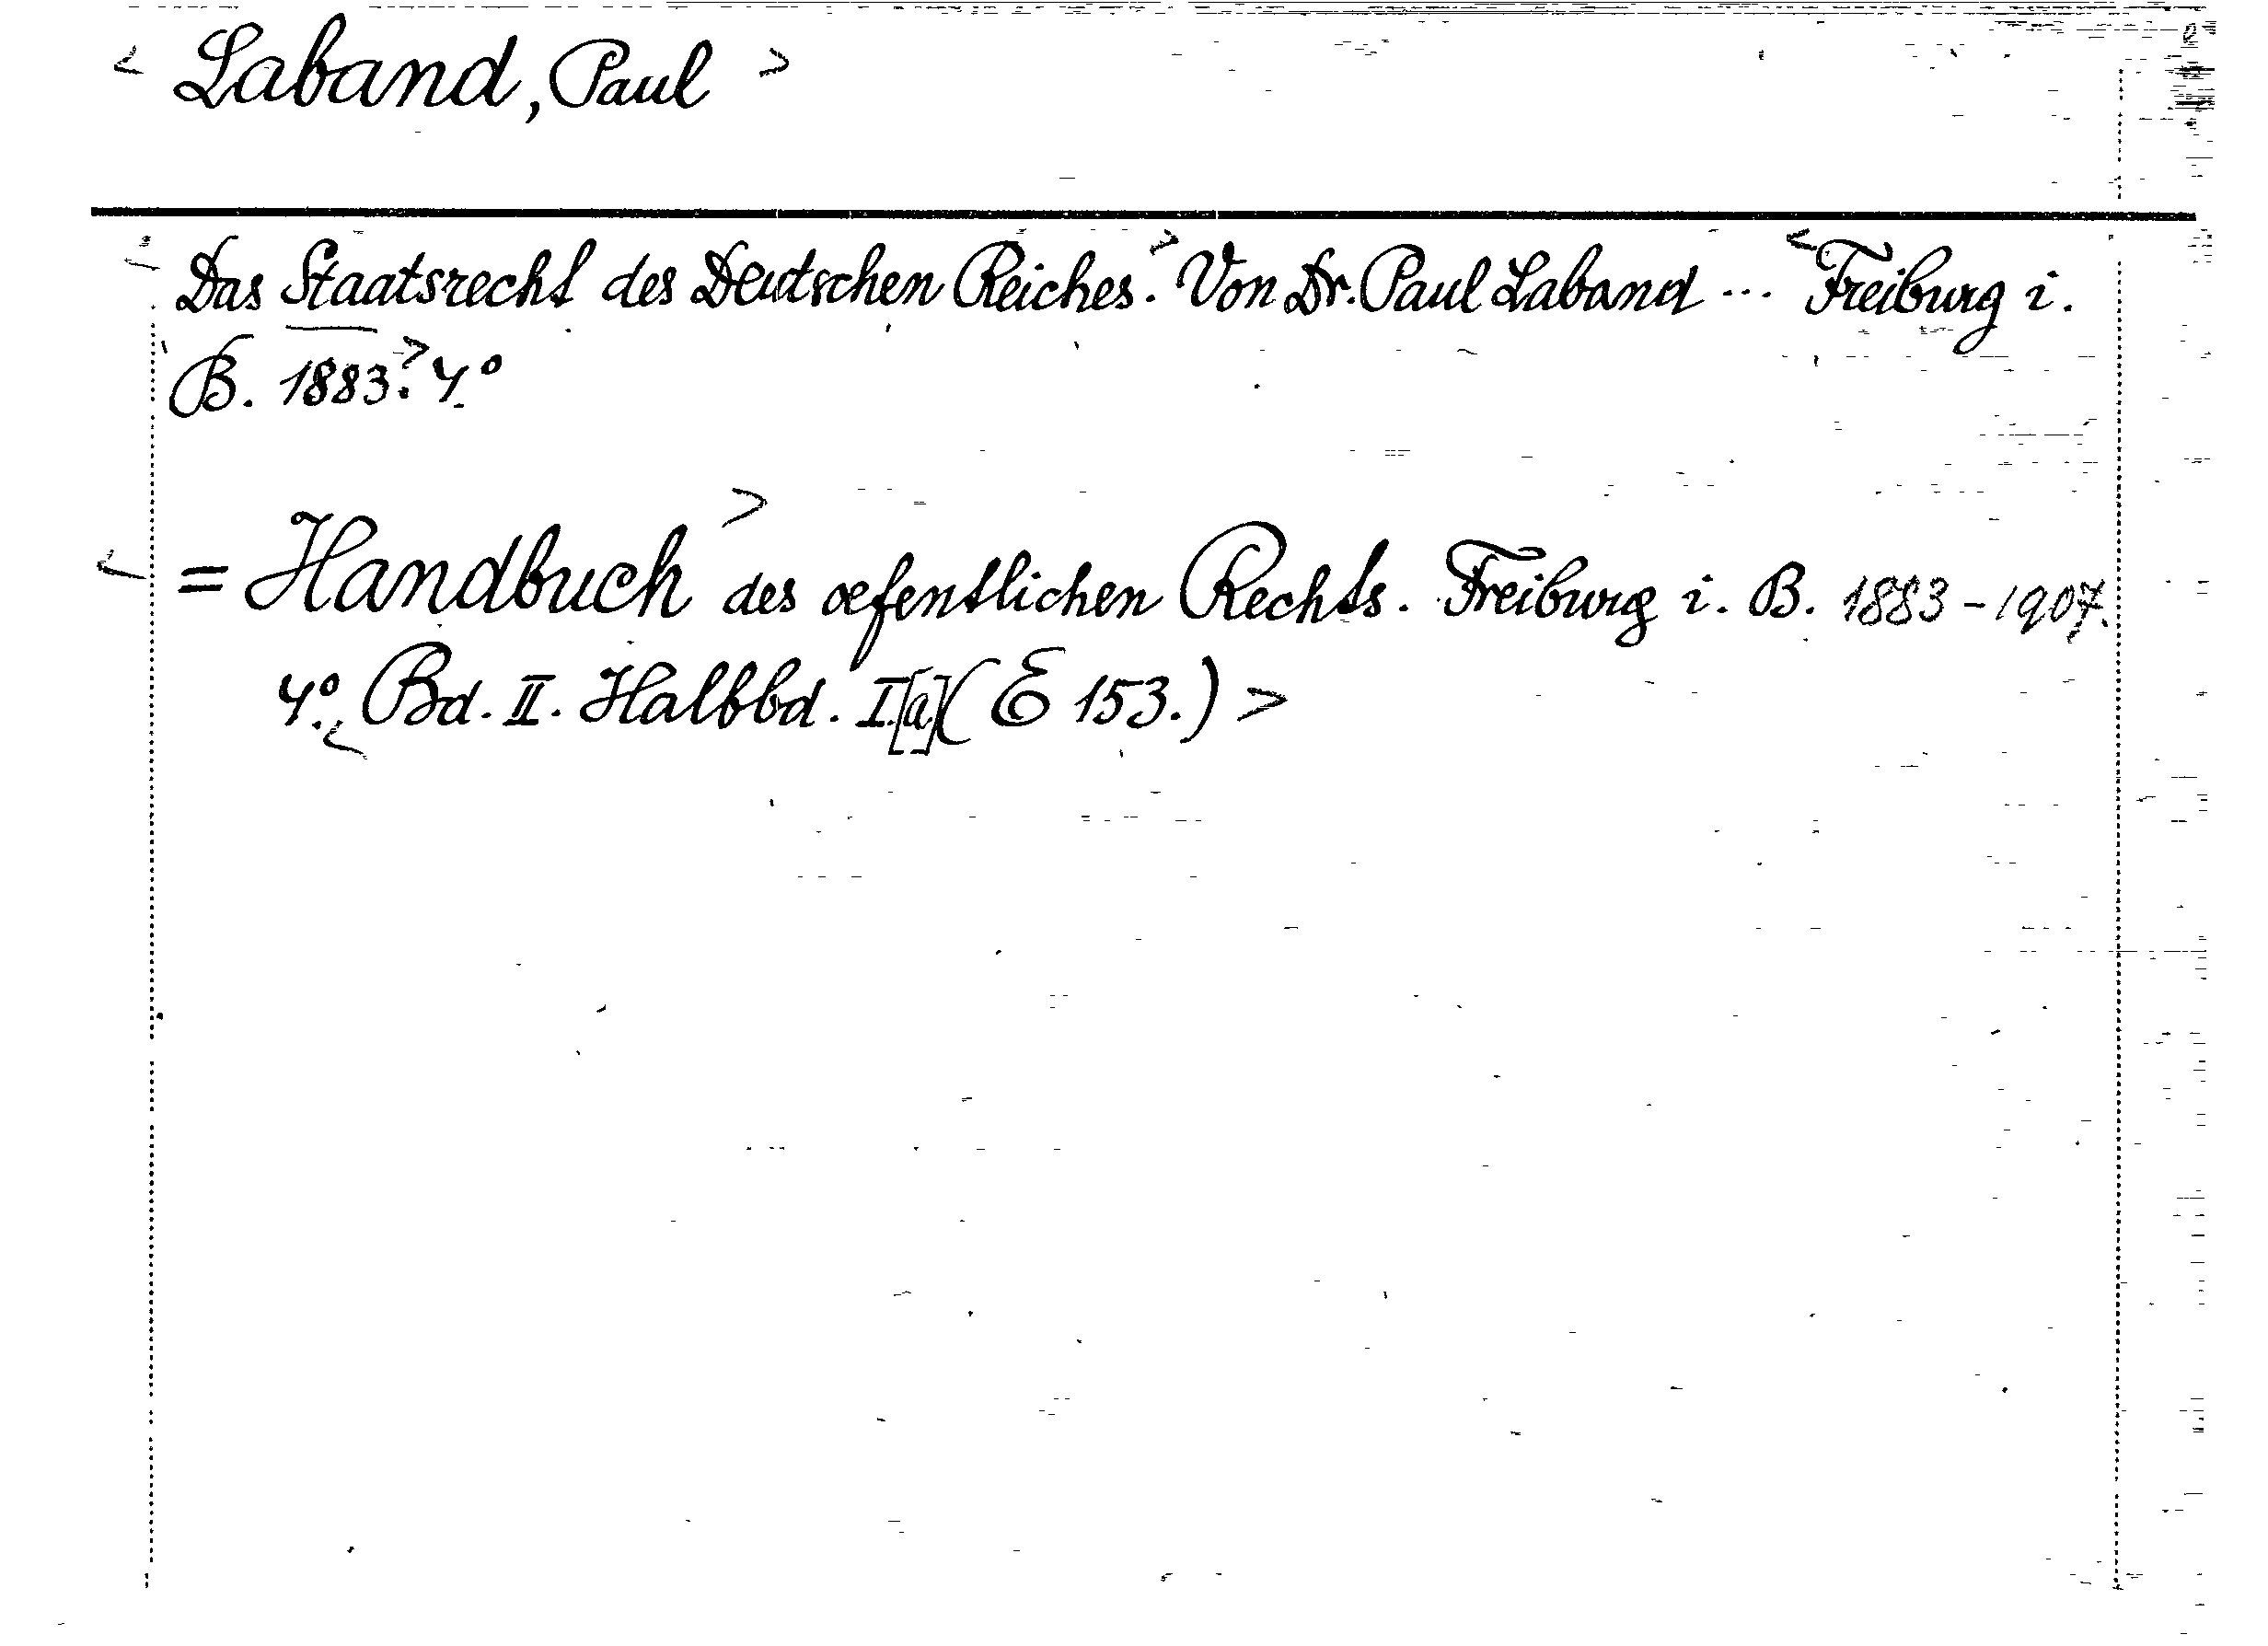 < Laband, Paul >
< Das Staatsrecht des Deutschen Reiches.> Von Dr. Paul Laband ... < Freiburg i.
B. 1883.> 4º
< = Handbuch > des oefentlichen Rechts. Freiburg i. B. 1883-1907.
4º. < Bd. II. Halbbd. I.[a] (E 153.) >